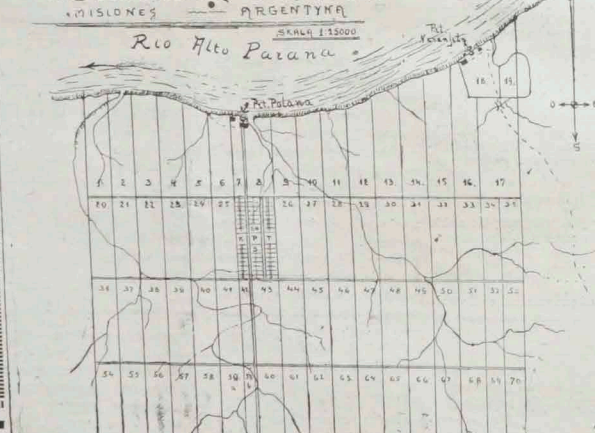 MISIONES — ARGENTYNA
SKALA 1:25000
Rio Alto Parana
Pzt.
18. 19.
Pzt. Polana
O
S
1. 2 3 4 5 6 7 8 9 10 11 12 13. 14. 15 16. 17
20. 21. 22 23 24 25 26 27 28 29 30 31 32 33 34 35
K P T
36 37 38 39 40 41 43 44 45 46 47 48 49 50 51 52
54 55 56 57 58 60 61 62 63 64 65 66 67 68 69 70